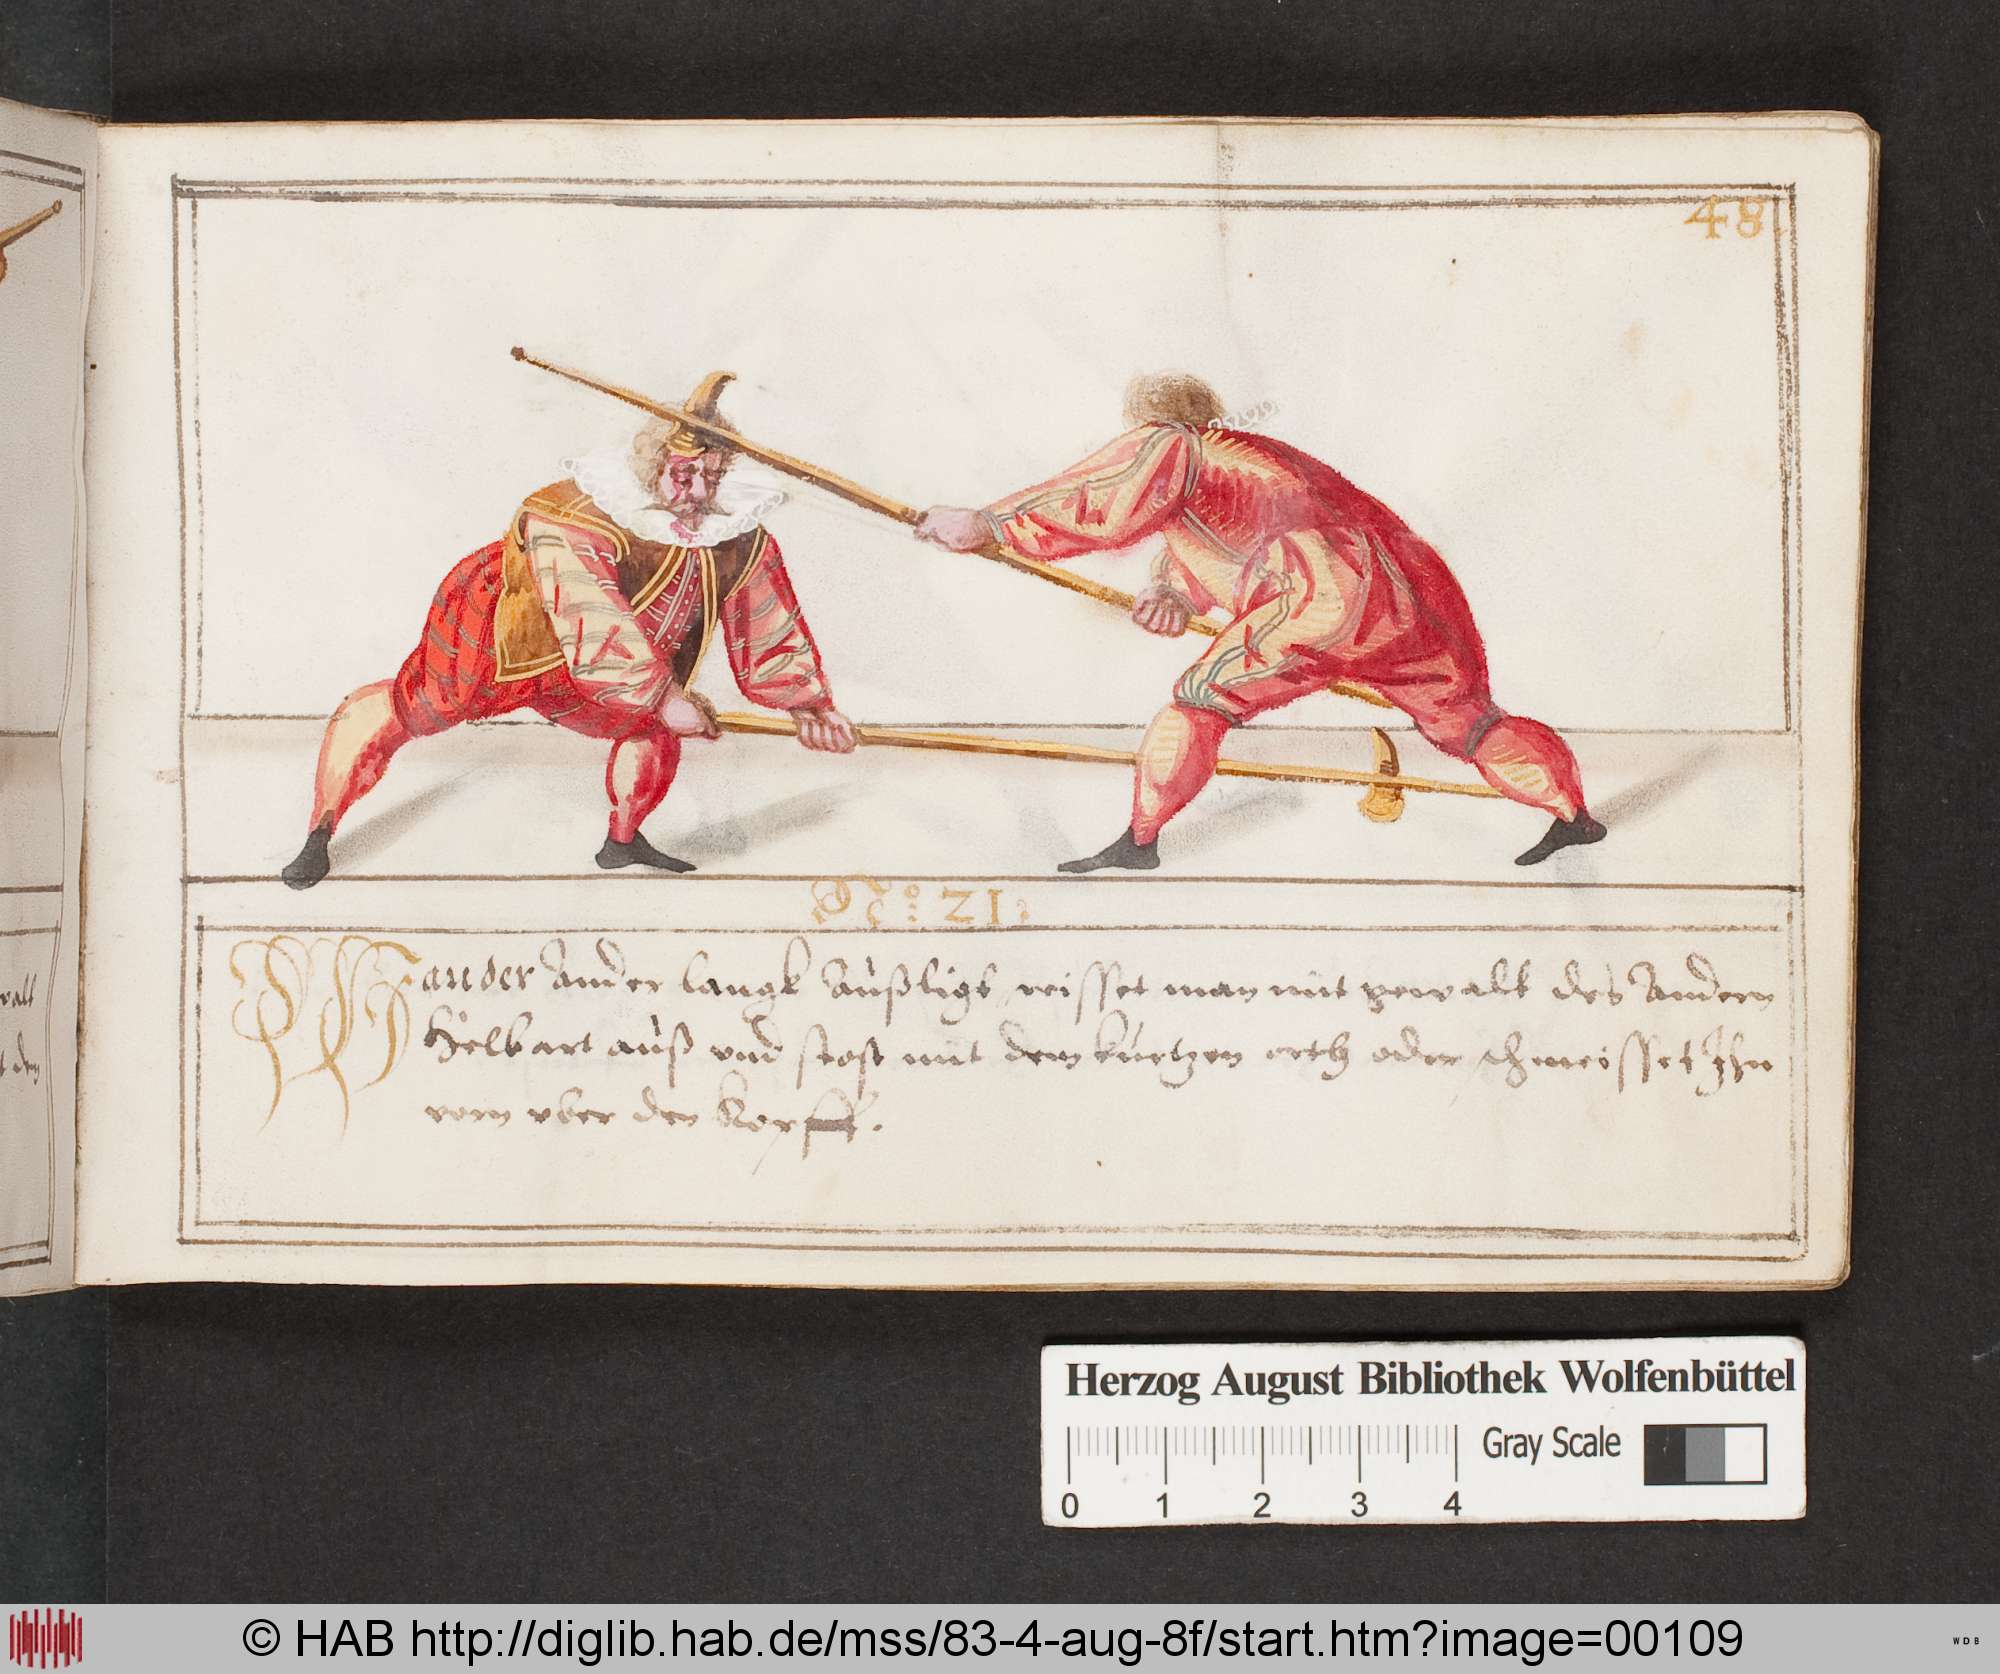 48
No: 21.
Wan der Ander langk Außligt, reisset man mit gewalt des Andern
Helbart auß vnd stost mit dem kurtzen orth oder schmeisset Ihn
vorn vber den Kopff.
walt
t dem
Herzog August Bibliothek Wolfenbüttel
Gray Scale
0 1 2 3 4
© HAB http://diglib.hab.de/mss/83-4-aug-8f/start.htm?image=00109
WDB